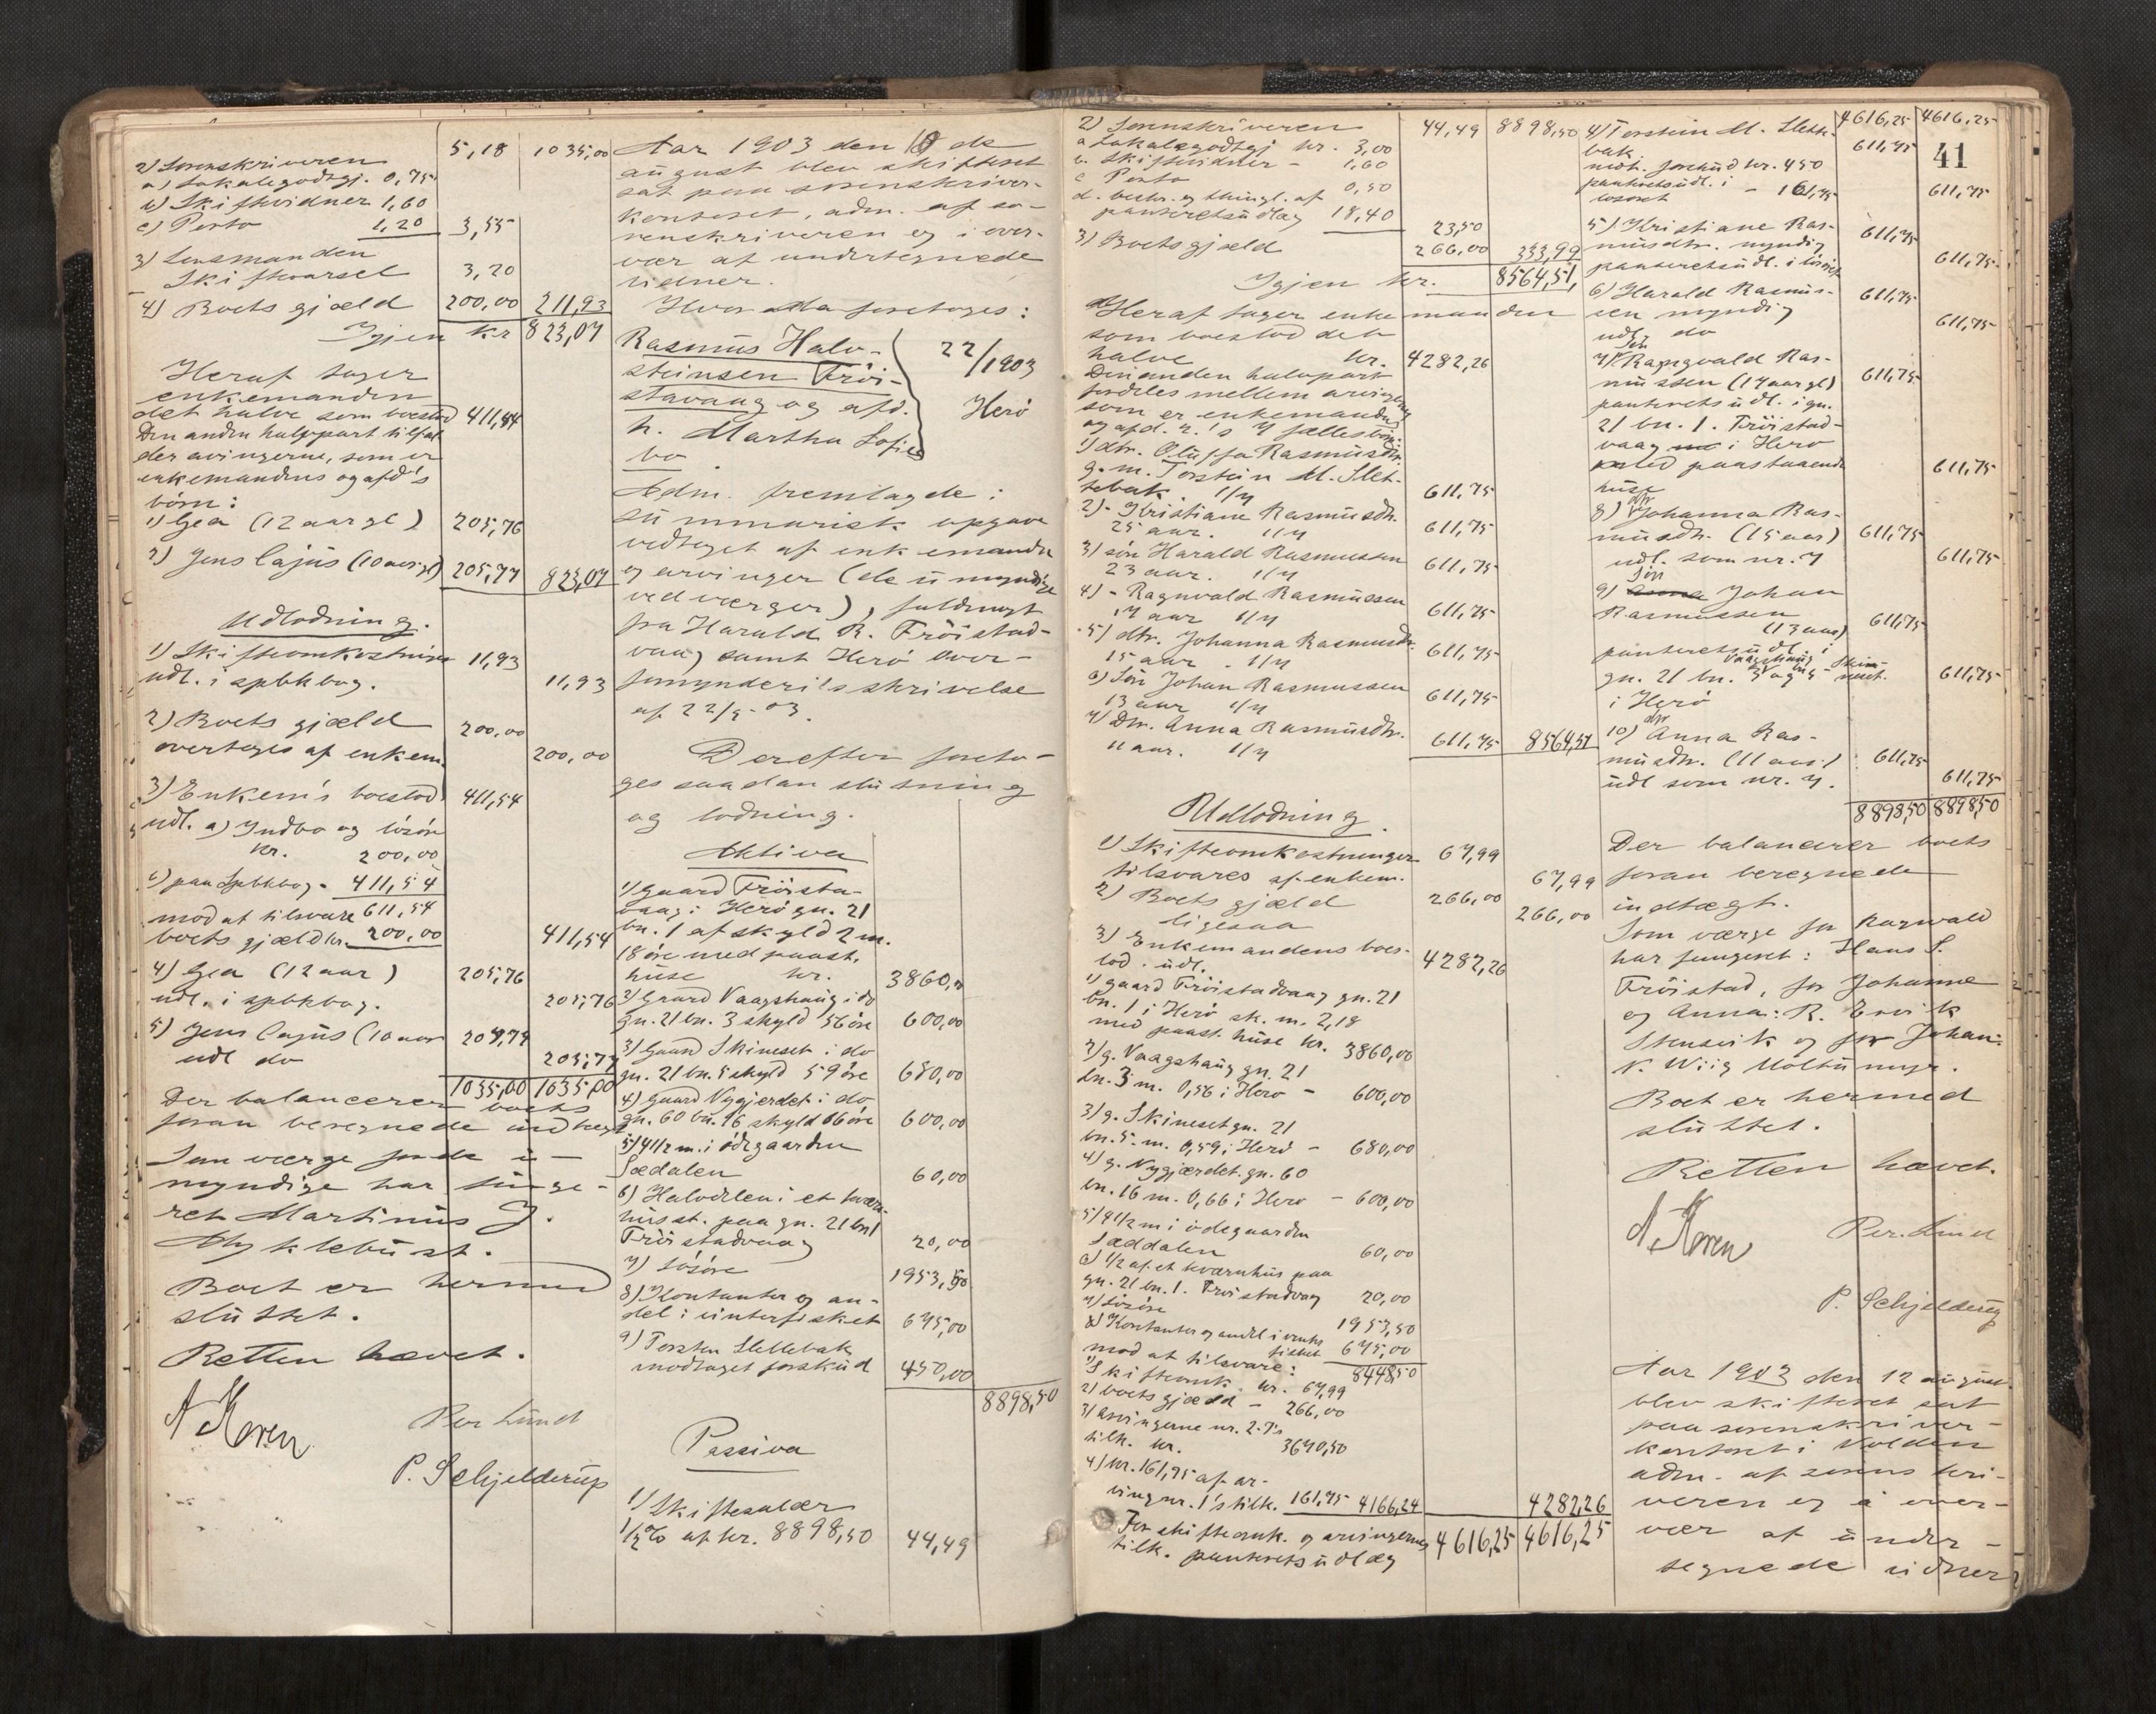 5,18 1035,00
2) Sorenskriveren
a) Lokalegodtgj. 0,75
b) Skiftevidner 1,60
c) Porto 1,20 3,55
3) Lensmanden
Skiftevarsel 3,20
4) Boets gjæld 200,00 211,93
Igjen kr 823,07
Heraf tager
enkemanden
det halve som boeslod 411,54
Den anden halvpart tilfal
der arvingerne, som er
enkemandens og afd's
børn:
1) Gea (12 aar gl.) 205,76
2) Jens Cajus (10 aar gl) 205,77 823,07
Udlodning.
1) Skifteomkostninger 11,93
udl. i spbkbog. 11,93
2) Boets gjæld 200,00
overtages af enkem. 200,00
3) Enkem's boeslod 411,54
udl. a) Indbo og løsøre
kr. 200,00
b) paa Spbkbog - 411,54
mod at tilsvare 611,54
boets gjæld kr. 200,00 411,54
4) Gea (12 aar) 205,76
udl. i spbkbog. 205,76
5) Jens Cajus (10 aar 205,77
udl do 205,77
1035,00 1035,00
Der balancerer boets
foran beregnede indtægt
Som værge for de u-
myndige har funge-
ret Martinus J.
Myklebust.
Boet er hermed
sluttet.
Retten hævet.
A Koren
Per Lund
P. Schjelderup
Aar 1903 den 10 de
august blev skifteret
sat paa sorenskriver-
kontoret, adm. af so-
renskriveren og i over-
vær af undertegnede
vidner.
Hvor da foretoges:
Rasmus Halv-
steinsen Frøi-
stavaag og afd.
h. Martha Sofies
bo.
22/1903
Herø
Adm. fremlagde:
summarisk opgave
vedtaget af enkemanden
og arvinger (de umyndige
ved værger), fuldmagt
fra Harald R. Frøistad-
vaag samt Herø over-
formynderi's skrivelse
af 22/5-03.
Derefter foreto-
ges saadan slutning
og lodning.
Aktiva
1) Gaard Frøista-
vaag i Herø gn. 21
bn. 1 af skyld 2 m.
18 øre med paast.
huse kr. 3860,00
2) Gaard Vaagshaug i do
gn. 21 bn. 3 skyld 56 øre 600,00
3) Gaard Skineset i do
gn. 21 bn. 5 skyld 59 øre 680,00
4) Gaard Nygjerdet i do
gn. 60 bn. 16 skyld 66 øre 600,00
5) 4 1/2 m. i ødegaarden
Sædalen 60,00
6) Halvdelen i et kværn-
hus st. paa gn. 21 bn 1
Frøistadvaag 20,00
7) Løsøre 1953,50
8) Kontanter og an-
del i vinterfisket 675,00
9) Torsten Slettebak
modtaget forskud 450,00
8898,50
Passiva
1) Skiftesalær
1/2 % af kr. 8898,50 44,49
41
44,49 8898,50
2) Sorenskriveren
a Lokalegodtgj kr. 3,00
b. Skiftevidner - 1,60
c Porto 0,50
d. beskr. og thingl. af
panteretsudlæg 18,40 23,50
3) Boets gjæld 266,00 333,99
Igjen kr. 8564,51
Heraf tager enkemanden
som boeslod det
halve kr. 4282,26
Den anden halvpart
fordeles mellem arvingerne
som er enkemandens
og afd. h.'s 7 fællesbørn:
1) dtr. Oluffa Rasmusdtr
g. m. Torstein M. Slet-
tebak. 1/7 611,75
2) - Kristiane Rasmusdtr.
25 aar. 1/7 611,75
3) søn Harald Rasmussen
23 aar. 1/7 611,75
4) - Ragnvald Rasmussen
17 aar 1/7 611,75
5) dtr. Johanna Rasmusdtr.
15 aar. 1/7 611,75
6) Søn Johan Rasmussen
13 aar 1/7 611,75
7) Dtr. Anna Rasmusdtr.
11 aar. 1/7 611,75 8564,51
Udlodning.
1) Skifteomkostninger 67,99
tilsvares af enkem. 67,99
2) Boets gjæld 266,00
ligesaa 266,00
3) Enkemandens boes-
lod. udl. 4282,26
1) gaard Frøistadvaag gn. 21
bn. 1 i Herø sk. m. 2,18
med paast. huse kr. 3860,00
2) g. Vaagshaug gn. 21
bn. 3 m. 0,56 i Herø - 600,00
3) g. Skineset gn. 21
bn. 5. m. 0,59 i Herø - 680,00
4) g. Nygjærdet gn. 60
bn. 16 m. 0,66 i Herø - 600,00
5) 4 1/2 m i ødegaarden
Sæddalen 60,00
6) 1/2 af et kværnhus paa
gn. 21 bn. 1. Frøistadvaag 20,00
7) Løsøre 1953,50
8) Kontanter og andel i vinter
fisket 675,00
mod at tilsvare: 8448,50
1) Skifteomk. kr. 67,99
2) boets gjæld - 266,00
3) Arvingerne nr. 2-7's
tilk. kr. 3670,50
4) kr. 161,75 af ar-
ving nr. 1's tilk. 161,75 4166,24 4282,26
For skifteomk. og arvingernes 4616,25 4616,25
tilk. panteretsudlæg
4616,25 4616,25
4) Torstein M. Slette-
bak 611,75
modt. forskud kr. 450
panteretsudl. i - 161,75
løsøret 611,75
5) Kristiane Ras- 611,75
musdtr. myndig
panteretsudl. i løsøret 611,75
6) Harald Rasmus- 611,75
sen myndig
udl. do 611,75
7) søn Ragnvald Ras-
mussen (17 aar gl) 611,75
panteretsudl. i gn.
21 bn. 1. Frøistad-
vaag i Herø
med paastaaende 611,75
huse
8) dtr Johanna Ras-
musdtr. (15 aar) 611,75
udl. som nr. 7 611,75
9) Søn Johan
Rasmussen 611,75
(13 aar)
panteretsudl. i
Vaagshaug Skin-
gn. 21 bn. 3 og 5 - neset. 611,75
i Herø
10) dtr Anna Ras-
musdtr. (11 aar) 611,75
udl som nr. 7. 611,75
8898,50 8898,50
Der balancerer boets
foran beregnede
indtægt.
Som værge for Ragnvald
har fungeret: Hans S.
Frøistad, for Johanna
og Anna: R. Ervik
Stensvik og for Johan:
K. Wiig Moltumyr.
Boet er hermed
sluttet.
Retten hævet.
A. Koren
Per. Lund
P. Schjelderup
Aar 1903 den 12 august
blev skifteret sat
paa sorenskriver-
kontoret i Volden
adm. af sorenskri-
veren og i over-
vær af under-
tegnede vidner